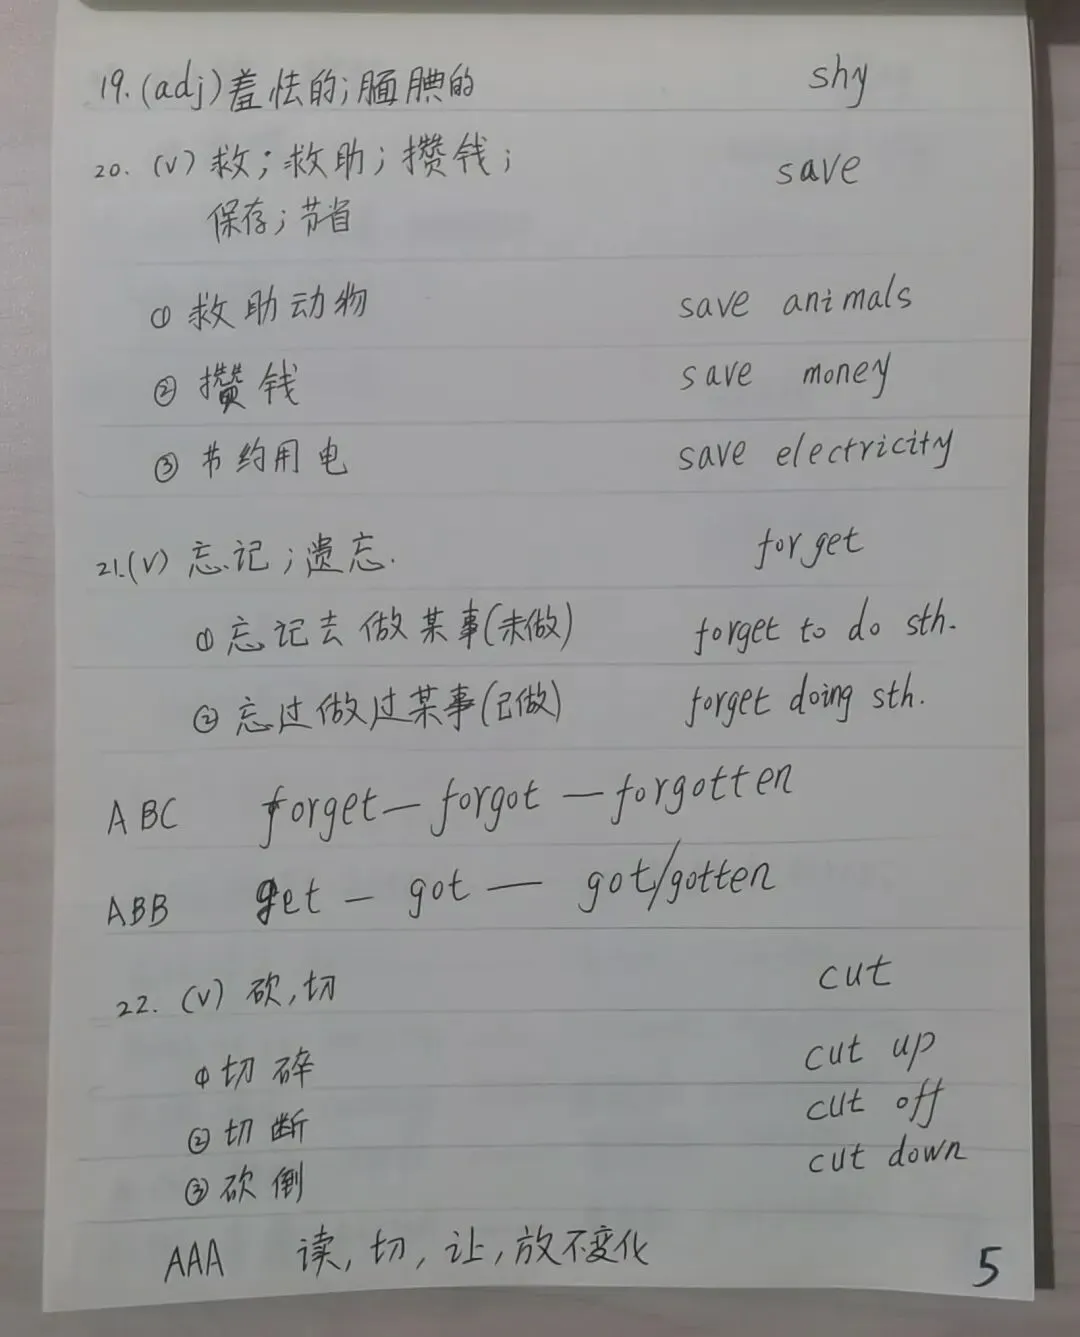 19. (adj) 羞怯的; 腼腆的 shy
20. (v) 救; 救助; 攒钱; save
保存; 节省
① 救助动物 save animals
② 攒钱 save money
③ 节约用电 save electricity
21. (v) 忘记; 遗忘. forget
① 忘记去做某事(未做) forget to do sth.
② 忘过做过某事(已做) forget doing sth.
ABC forget — forgot — forgotten
ABB get — got — got/gotten
22. (v) 砍, 切 cut
① 切碎 cut up
② 切断 cut off
③ 砍倒 cut down
AAA 读, 切, 让, 放不变化
5